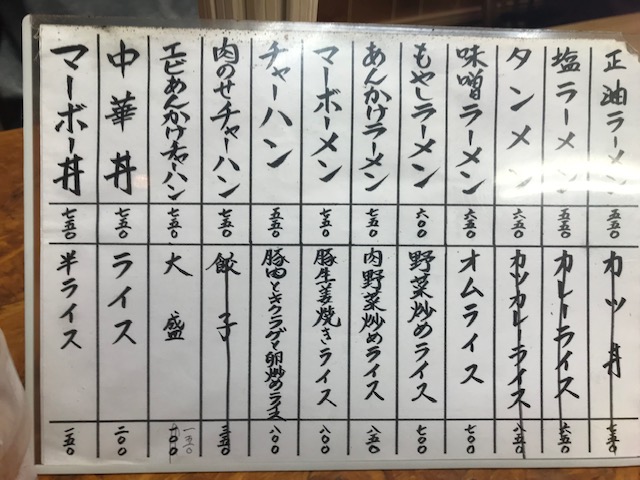 正油ラーメン 五五〇
塩ラーメン 五五〇
タンメン 六五〇
味噌ラーメン 六五〇
もやしラーメン 六〇〇
あんかけラーメン 七五〇
マーボーメン 七五〇
チャーハン 五五〇
肉のせチャーハン 七五〇
エビあんかけチャーハン 七五〇
中華丼 七五〇
マーボー丼 七五〇
カツ丼 七五〇
カレーライス 六五〇
カツカレーライス 八五〇
オムライス 七〇〇
野菜炒めライス 七〇〇
肉野菜炒めライス 八五〇
豚生姜焼きライス 八〇〇
豚肉とキクラゲと卵炒めライス 八〇〇
餃子 三五〇
大盛 一〇〇 一五〇
ライス 二〇〇
半ライス 一五〇